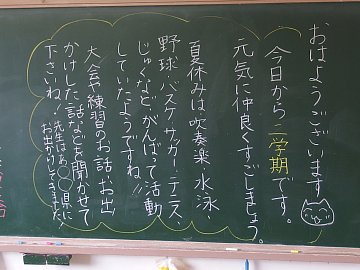 おはようございます
今日から二学期です。
元気に仲良くすごしましょう。
夏休みは吹奏楽・水泳・
野球・バスケ・サッカー・テニス・
じゅくなど、がんばって活動
していたようですね!!
大会や練習のお話、お出
かけした話などを聞かせて
下さいね!
先生はあ〇〇県に
お出かけしてきました!